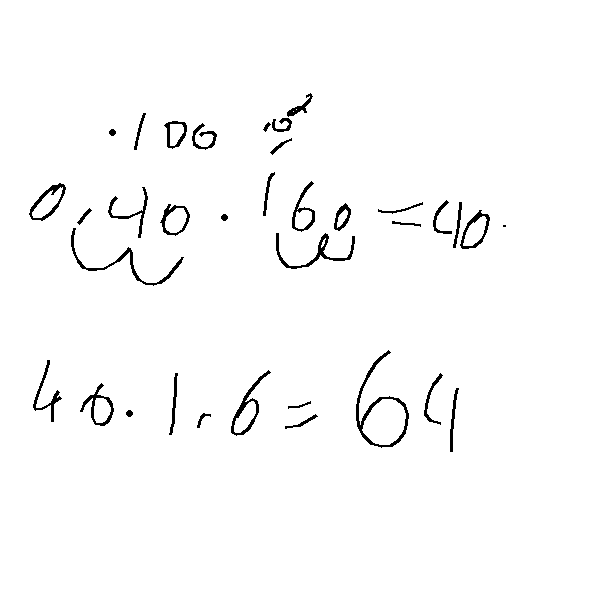 ·100
0,40 · 160 = 40·
40·1,6 = 64